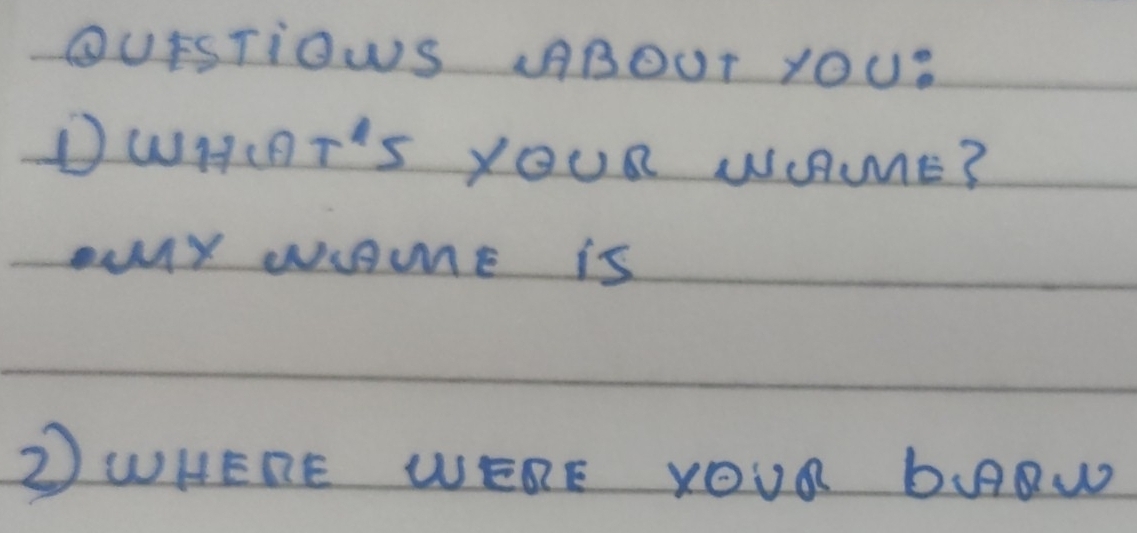 QUESTIONS ABOUT YOU:
1) WHAT'S YOUR NAME?
•MY NAME IS
2) WHERE WERE YOUR bARN